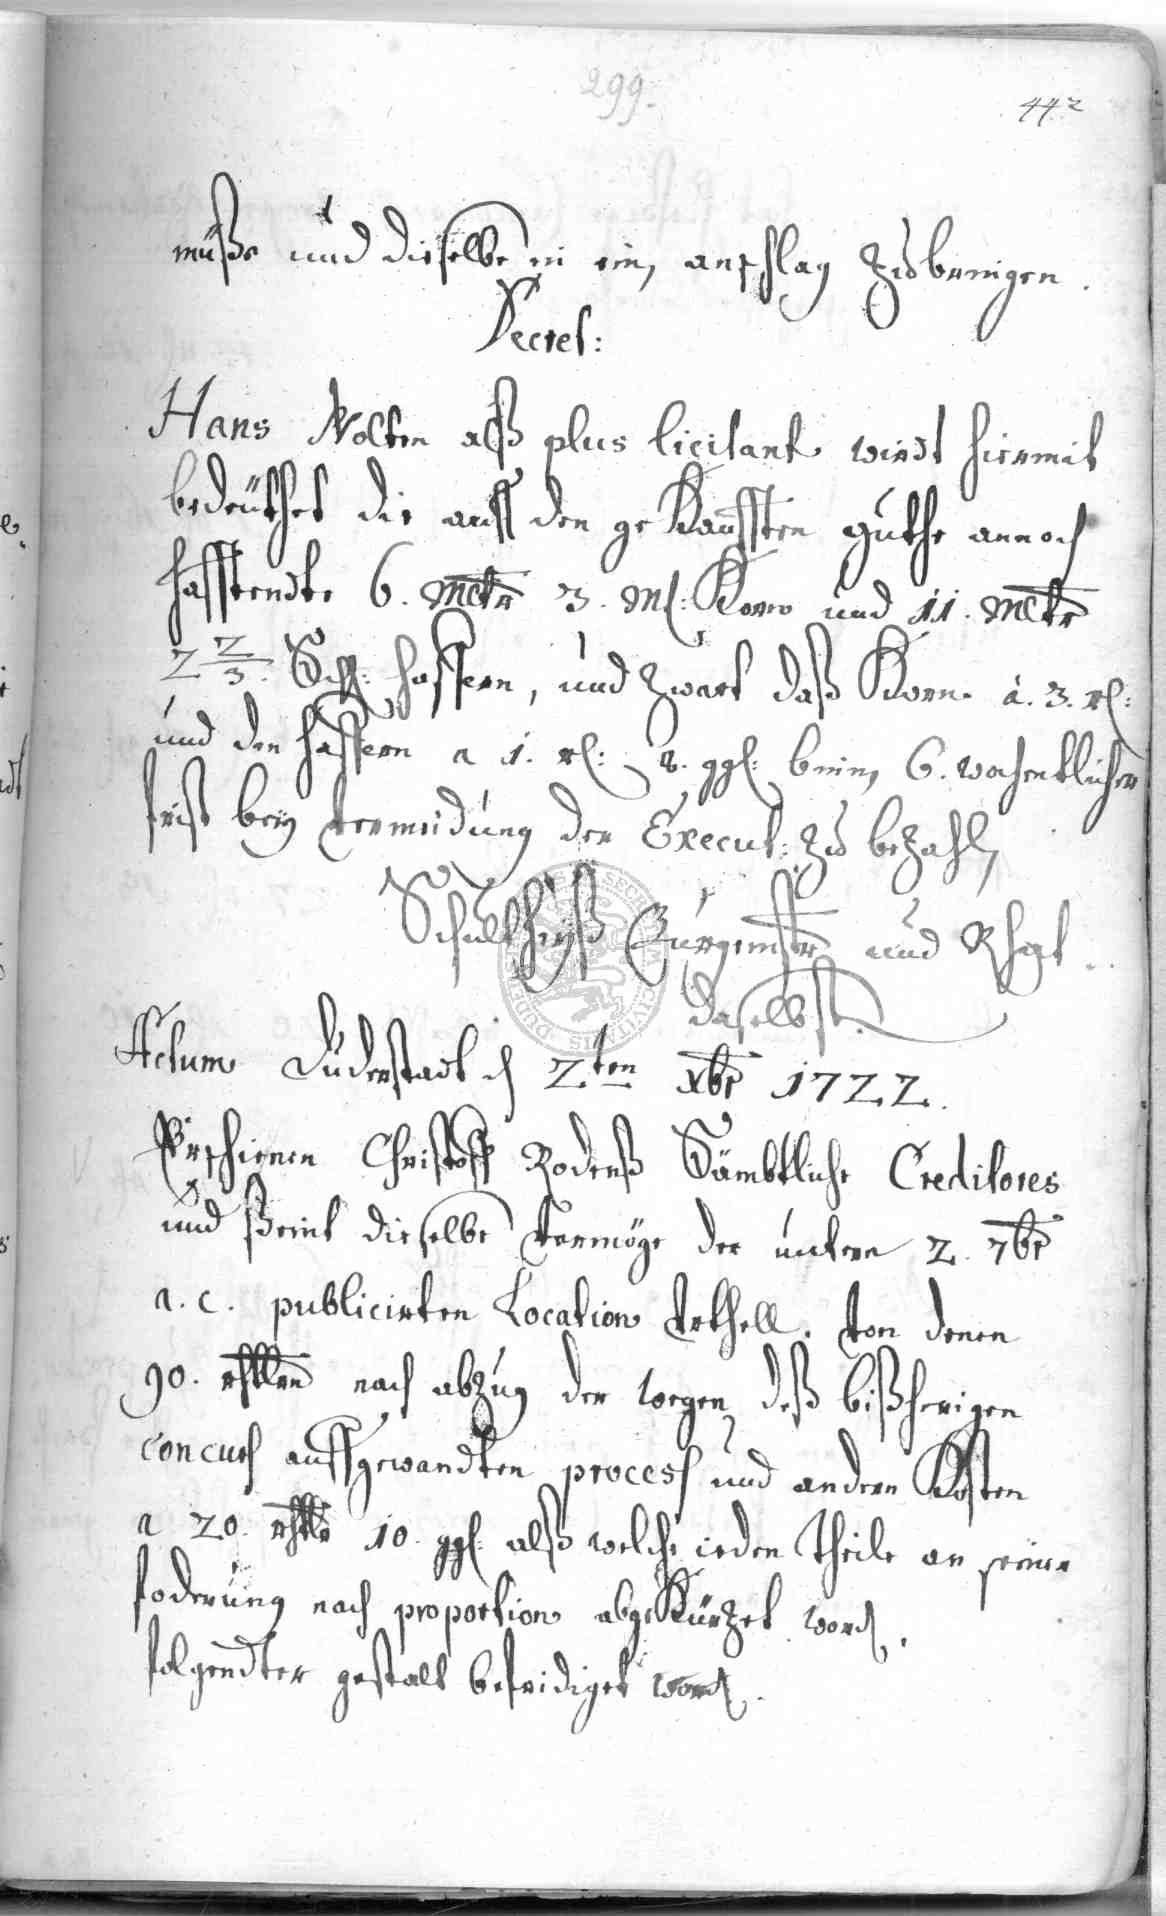 299.
442
müße und dieselbe in ein anschlag zu bringen.
Decret:
Hans Nolten alß plus licitant wirdt hiermit
bedeüthet die auff den gekaufften guthe annoch
hafftendte 6. Mltr 3. Mß: Korn und 11. Mltr
2 2/3. Schf: haffern, und zwart daß Korn à. 3. rß:
und den haffern a 1. rß: 8. ggl: binnen 6. wochentlicher
frist beÿ vermeidung der Execut: zu bezahlen
Schultheiß Bürgemstr und Rhat
daselbst.
Actum Duderstadt d 2ten Xbr 1722.
Erschienen Christoff Rodenß Sämbtliche Creditores
und seint dieselbe vermöge der untern 2. 7br
a. c. publicirten Location Urthell. von denen
90. rthlrn nach abzug der wegen deß bißherigen
concurs auffgewandten process und andern Kosten
a 20. rthlr 10. ggl: alß welche ieden theile an seiner
foderung nach proportion abgekürzet word.
folgendter gestalt befridiget word.
SECRETUM CIVITATIS DUDER